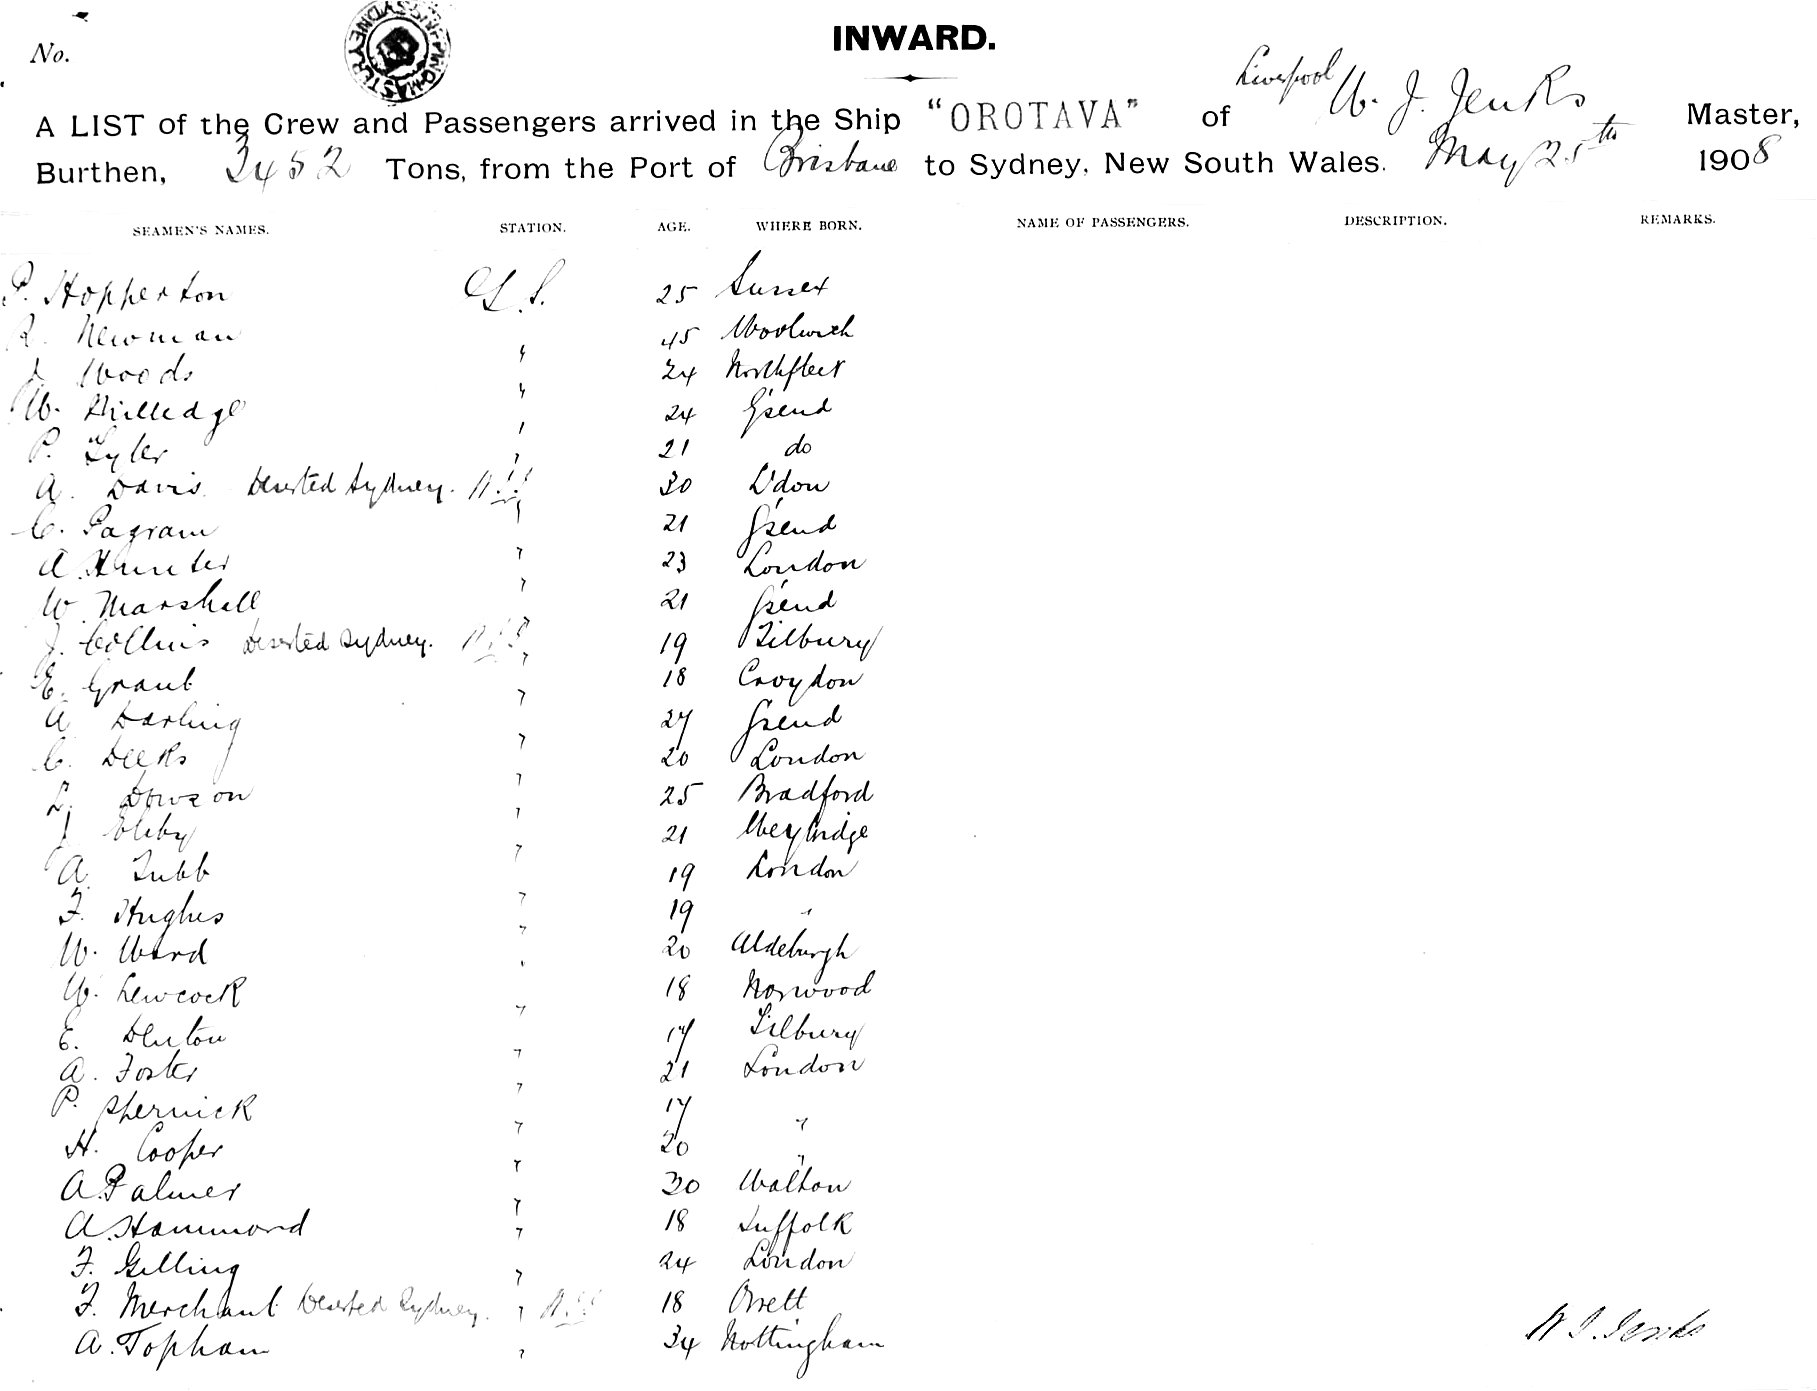 No.
INWARD.
A LIST of the Crew and Passengers arrived in the Ship "OROTAVA" of Liverpool W. J. Jenks Master,
Burthen, 3452 Tons, from the Port of Brisbane to Sydney, New South Wales. May 25th 1908
SEAMEN'S NAMES. STATION. AGE. WHERE BORN. NAME OF PASSENGERS. DESCRIPTION. REMARKS.
P. Hopperton G. S. 25 Sussex
R. Newman " 45 Woolwich
J. Woods " 24 Northfleet
W. " 24 G'send
P. Tyler " 21 do
A. Davis Deserted Sydney. " 30 L'don
C. Pagram " 21 G'send
A. Hunter " 23 London
W. Marshall " 21 G'send
J. Collins Deserted Sydney. " 19 Tilbury
E. Grant " 18 Croydon
A. Darling " 27 G'send
C. Deeks " 20 London
L. Dowson " 25 Bradford
J. " 21 Weybridge
A. Tubb " 19 London
F. Hughes " 19 "
W. Ward " 20 Aldeburgh
W. Lewcock " 18 Norwood
E. Denton " 17 Tilbury
A. Foster " 21 London
P. " 17 "
H. Cooper " 20 "
A. Palmer " 30 Walton
A. Hammond " 18 Suffolk
F. Gilling " 24 London
F. Merchant Deserted Sydney. " 18 Orrell
A. Topham " 34 Nottingham
W J. Jenks